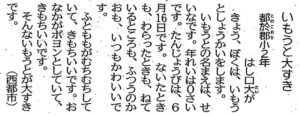 いもうと大すき
都於郡小2年
はし口大が
きょう、ぼくは、いもう
としょうかいをします。
いもうとの名まえは、せ
いなです。年れいは0さい
です。たんじょうびは、6
月16日です。ないたとき
も、わらったときも、ねて
いるところも、ふつうのか
おも、いつもかわいいで
す。
ふとももがむちむちして
いて、きもちいいです。お
なかがボヨンとしていて、
きもちいいです。
そんないもうとが大すき
です。
(西都市)